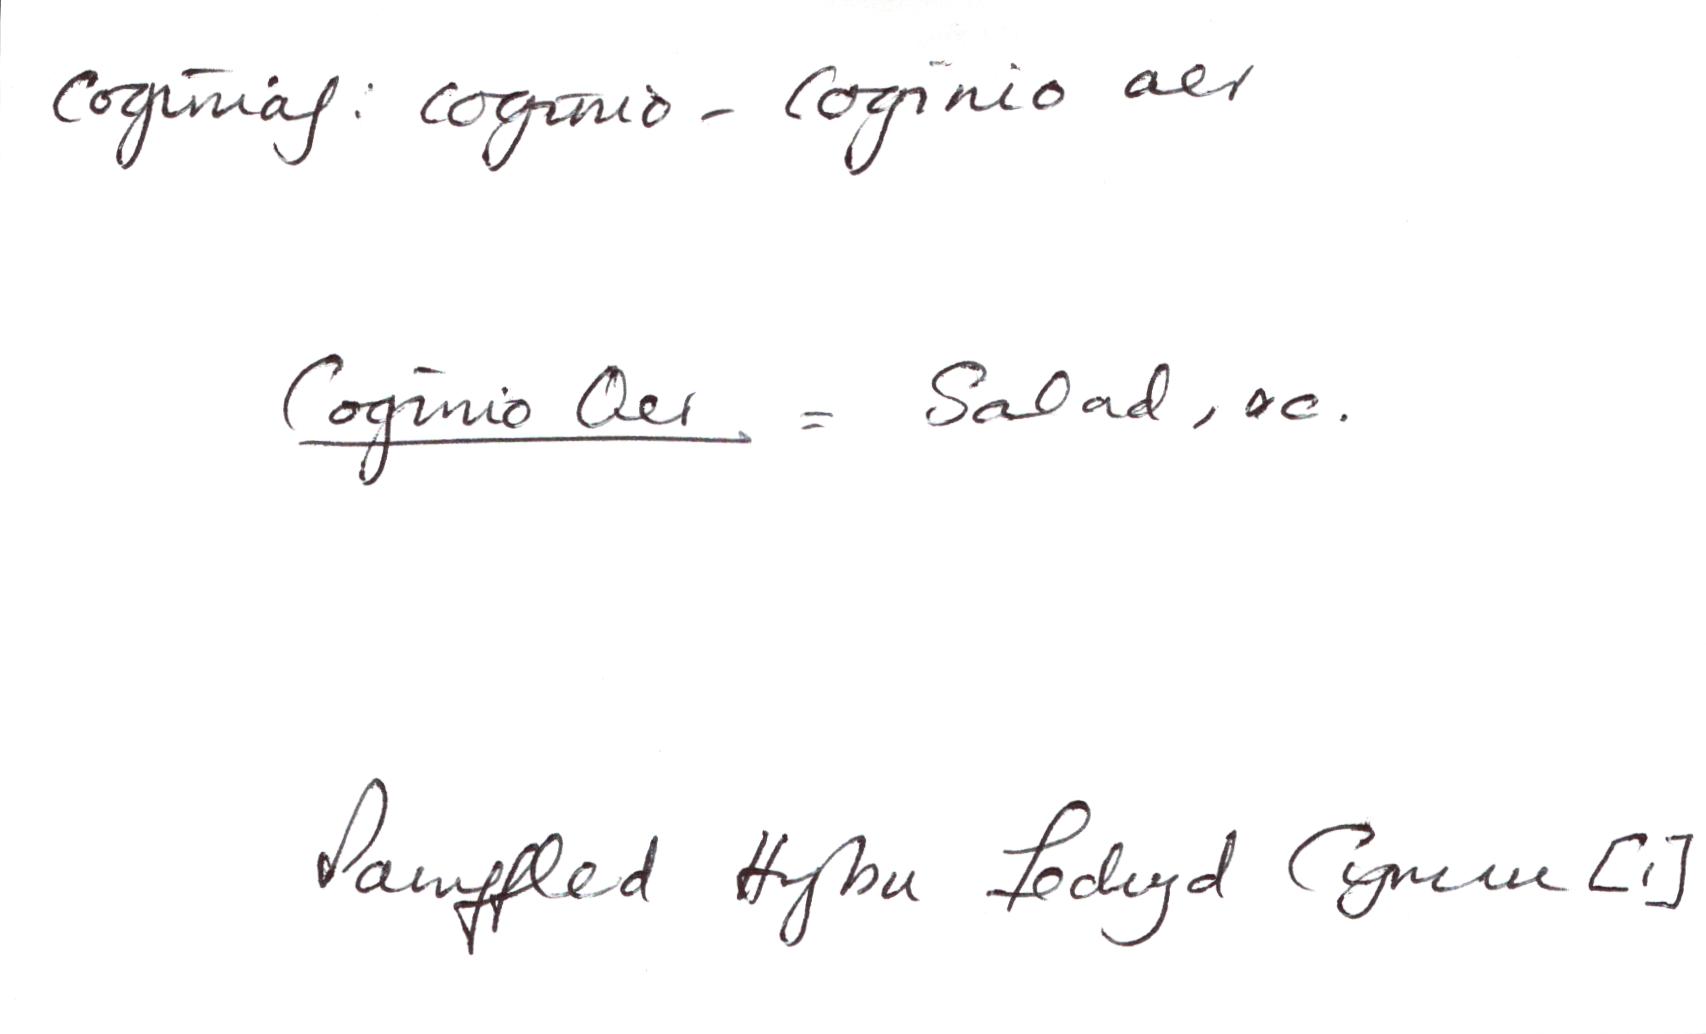 Coginiaf: coginio - Coginio aer
Coginio Aer = Salad, &c.
Pamffled Hybu Iechyd Cymru [1]